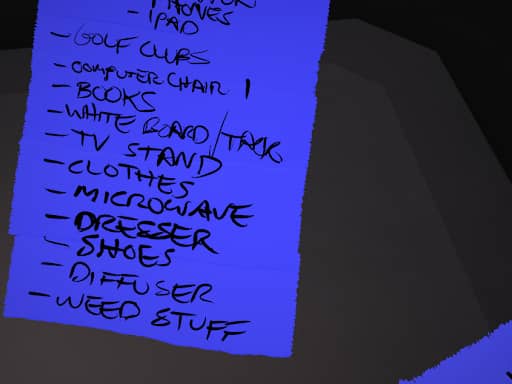 - IPAD
- GOLF CLUBS
- COMPUTER CHAIR 1
- BOOKS
- WHITE BOARD / TACKS
- TV STAND
- CLOTHES
- MICROWAVE
- DRESSER
- SHOES
- DIFFUSER
- WEED STUFF